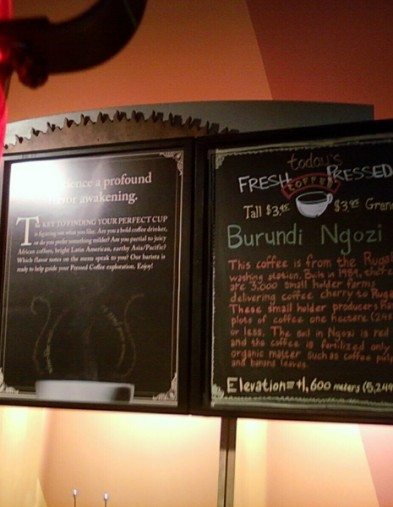 ience a profound
flavor awakening.
THE KEY TO FINDING YOUR PERFECT CUP
is figuring out what you like. Are you a bold coffee drinker,
or do you prefer something milder? Are you partial to juicy
African coffees, bright Latin American, earthy Asia/Pacific?
Which flavor notes on the menu speak to you? Our barista is
ready to help guide your Pressed Coffee exploration. Enjoy!
today's
FRESH PRESSED
COFFEE
Tall $3.45 $3.95 Gran
Burundi Ngozi
This coffee is from the Rugal
washing station. Built in 1984, there
are 3,000 small holder farms
delivering coffee cherry to Ruga
These small holder producers ha
plots of coffee one hectare (2.4
or less. The soil in Ngozi is red
and the coffee is fertilized only
organic matter such as coffee pulp
and banana leaves.
Elevation = 1,600 meters (5,249